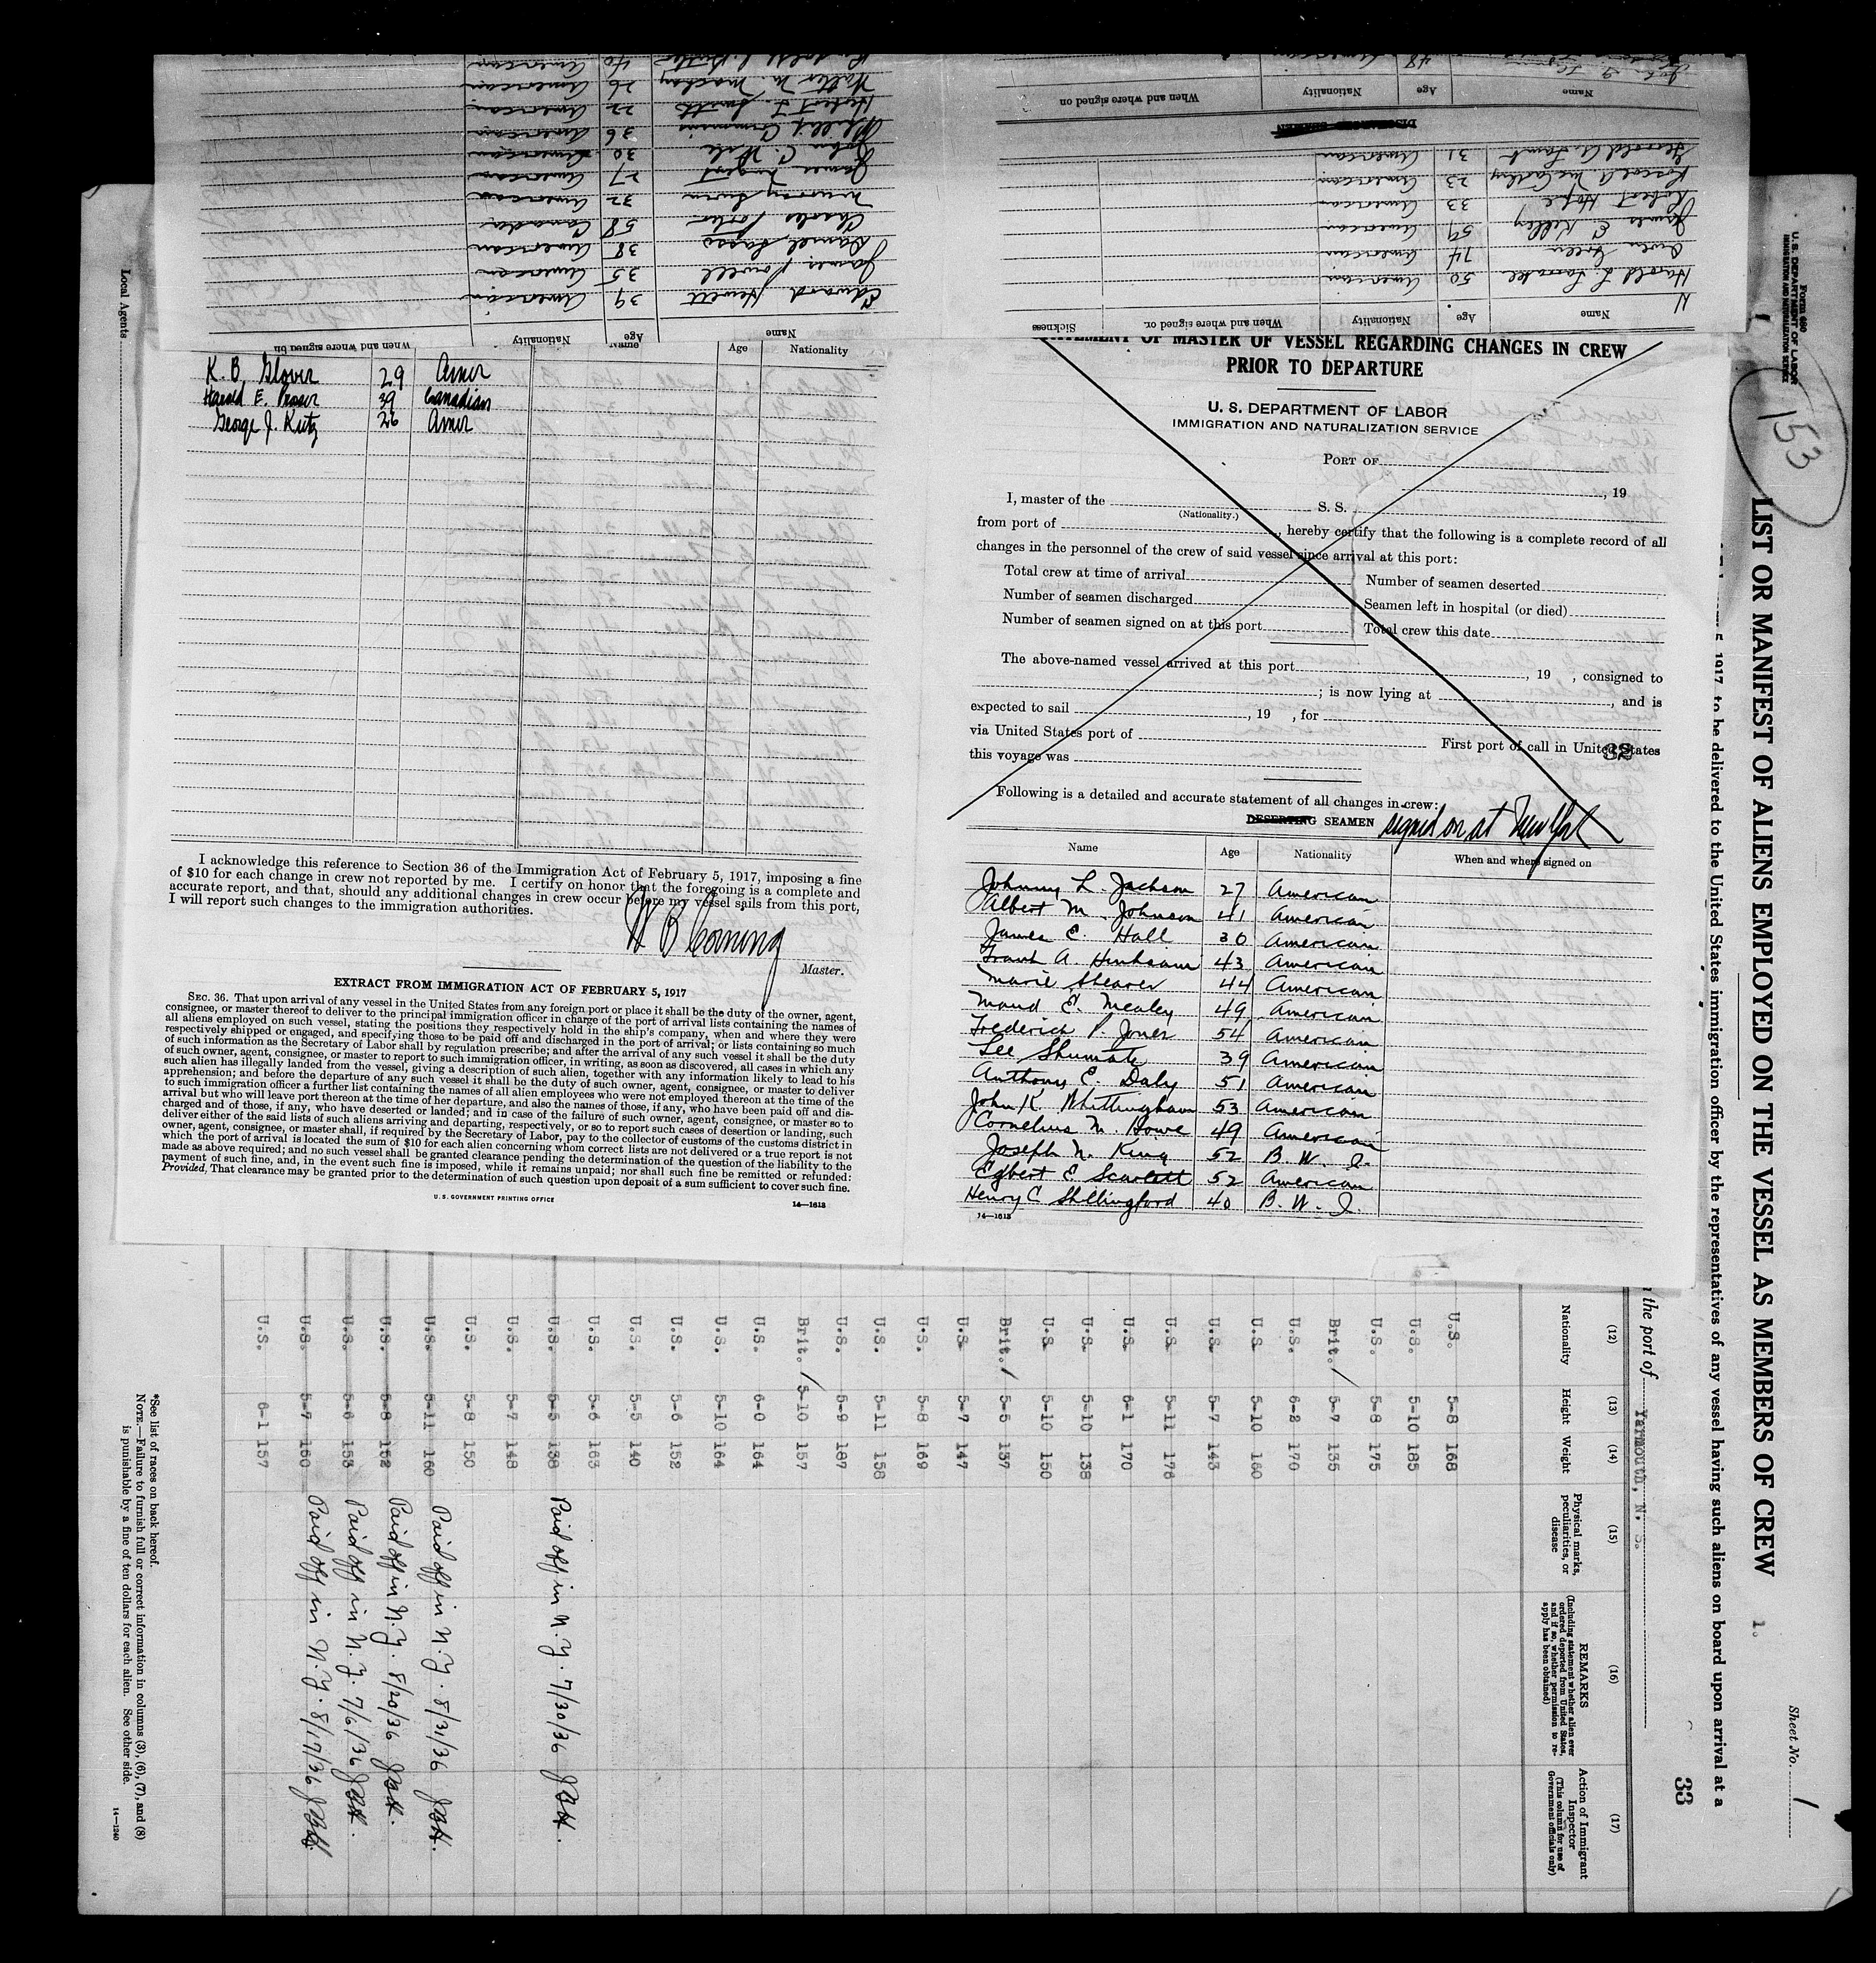 Name Age Nationality When and where signed on
Edward Hewett 39 American
James Powell 35 American
Daniel Sasso 38 American
Charles Porter 58 Canadian
Murray Swern 32 American
James Nugent 27 American
John C. Wale 30 American
36 American
Hubert J. Smith 22 American
Walter M. Mackay 26 American
40 American
Name Age Nationality When and where signed on or Sickness
Harold L. Larrabee 50 American
Owen Greer 74 American
James E Kelley 59 American
Robert Hope 33 American
Roscoe A McCauley 23 American
Gerald A. Lamb 31 American
DISCHARGED SEAMEN
Name Age Nationality When and where signed on
48 American
Name Age Nationality
K. B. Glover 29 Amer
Harold E. Prosser 39 Canadian
George J. Kutz 26 Amer
I acknowledge this reference to Section 36 of the Immigration Act of February 5, 1917, imposing a fine
of $10 for each change in crew not reported by me. I certify on honor that the foregoing is a complete and
accurate report, and that, should any additional changes in crew occur before my vessel sails from this port,
I will report such changes to the immigration authorities.
W B Corning
Master.
EXTRACT FROM IMMIGRATION ACT OF FEBRUARY 5, 1917
SEC. 36. That upon arrival of any vessel in the United States from any foreign port or place it shall be the duty of the owner, agent,
consignee, or master thereof to deliver to the principal immigration officer in charge of the port of arrival lists containing the names of
all aliens employed on such vessel, stating the positions they respectively hold in the ship's company, when and where they were
respectively shipped or engaged, and specifying those to be paid off and discharged in the port of arrival; or lists containing so much
of such information as the Secretary of Labor shall by regulation prescribe; and after the arrival of any such vessel it shall be the duty
of such owner, agent, consignee, or master to report to such immigration officer, in writing, as soon as discovered, all cases in which any
such alien has illegally landed from the vessel, giving a description of such alien, together with any information likely to lead to his
apprehension; and before the departure of any such vessel it shall be the duty of such owner, agent, consignee, or master to deliver
to such immigration officer a further list containing the names of all alien employees who were not employed thereon at the time of the
arrival but who will leave port thereon at the time of her departure, and also the names of those, if any, who have been paid off and dis-
charged and of those, if any, who have deserted or landed; and in case of the failure of such owner, agent, consignee, or master so to
deliver either of the said lists of such aliens arriving and departing, respectively, or so to report such cases of desertion or landing, such
owner, agent, consignee, or master shall, if required by the Secretary of Labor, pay to the collector of customs of the customs district in
which the port of arrival is located the sum of $10 for each alien concerning whom correct lists are not delivered or a true report is not
made as above required; and no such vessel shall be granted clearance pending the determination of the question of the liability to the
payment of such fine, and, in the event such fine is imposed, while it remains unpaid; nor shall such fine be remitted or refunded:
Provided, That clearance may be granted prior to the determination of such question upon deposit of a sum sufficient to cover such fine.
U. S. GOVERNMENT PRINTING OFFICE 14—1613
STATEMENT OF MASTER OF VESSEL REGARDING CHANGES IN CREW
PRIOR TO DEPARTURE
U. S. DEPARTMENT OF LABOR
IMMIGRATION AND NATURALIZATION SERVICE
PORT OF
, 19
I, master of the S. S.
(Nationality.)
from port of , hereby certify that the following is a complete record of all
changes in the personnel of the crew of said vessel since arrival at this port:
Total crew at time of arrival Number of seamen deserted
Number of seamen discharged Seamen left in hospital (or died)
Number of seamen signed on at this port Total crew this date
The above-named vessel arrived at this port , 19 , consigned to
; is now lying at , and is
expected to sail , 19 , for
via United States port of First port of call in United States
32
this voyage was
Following is a detailed and accurate statement of all changes in crew:
DESERTING SEAMEN signed on at New York
Name Age Nationality When and where signed on
Johnny L. Jackson 27 American
Albert M. Johnson 41 American
James E. Hall 30 American
Frank A. Hinkson 43 American
Marie Shearer 44 American
Maud E. Mealey 49 American
Frederick P. Jones 54 American
Lee Shumate 39 American
Anthony E. Daly 51 American
John K. Whittingham 53 American
Cornelius M. Howe 49 American
Joseph N. King 52 B. W. I.
Egbert E Scarlett 52 American
Henry C Shillingford 40 B. W. I.
14—1613
Form 680
U. S. DEPARTMENT OF LABOR
IMMIGRATION AND NATURALIZATION SERVICE
153
LIST OR MANIFEST OF ALIENS EMPLOYED ON THE VESSEL AS MEMBERS OF CREW
1.
Sheet No. 1
1917, to be delivered to the United States immigration officer by the representatives of any vessel having such aliens on board upon arrival at a
33
the port of Yarmouth, N. S.
(12) (13) (14) (15) (16) (17)
Nationality Height Weight Physical marks, peculiarities, or disease
REMARKS
(Including statement whether alien ever ordered deported from United States, and if so, whether permission to re-apply has been obtained)
Action of Immigrant Inspector
(This column for use of Government officials only)
U.S. 5-8 168
U.S. 5-10 185
U.S. 5-8 175
Brit. / 5-7 135
U.S. 6-2 170
U.S 5-10 160
U.S. 5-7 143
U.S. 5-11 176
U.S. 6-1 170
U.S. 5-10 138
U.S 5-10 150
Brit. / 5-5 137
U.S 5-7 147
U.S. 5-8 169
U.S. 5-11 158
U.S. 5-9 187
Brit. / 5-10 157
U.S. 6-0 164
U.S. 5-10 164
U.S. 5-6 152
U.S. 5-5 140
U.S. 5-6 163
U.S. 5-5 138 Paid off in N.Y. 7/30/36 JBH.
U.S. 5-7 148
U.S. 5-8 150
U.S. 5-11 160 Paid off in N.Y. 8/31/36 JBH.
U.S. 5-8 152 Paid off in N.Y. 8/20/36 JBH.
U.S. 5-6 153 Paid off in N.Y. 7/6/36 JBH.
U.S. 5-7 160 Paid off in N.Y. 8/17/36 JBH.
U.S. 6-1 157
Local Agents
*See list of races on back hereof.
NOTE.—Failure to furnish full or correct information in columns (3), (6), (7), and (8)
is punishable by a fine of ten dollars for each alien. See other side.
14—1240